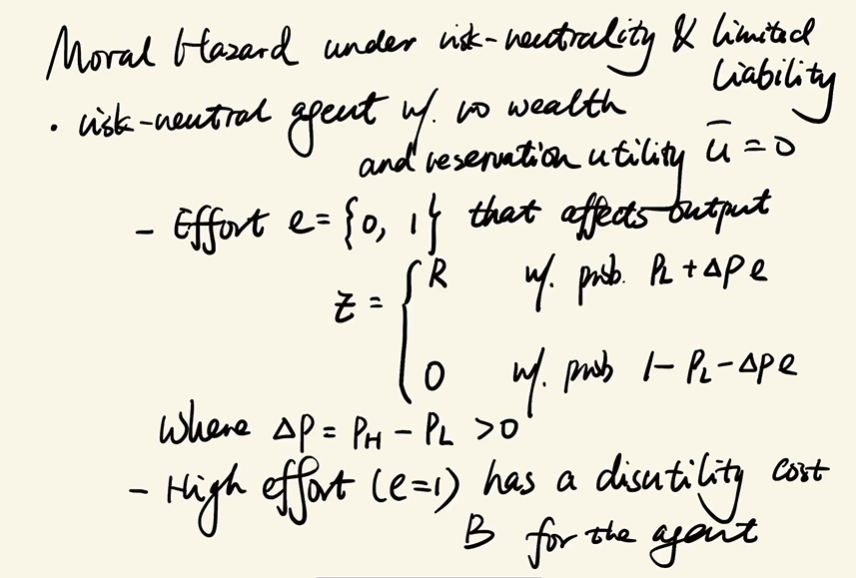 Moral Hazard under risk-neutrality & limited
liability
· risk-neutral agent w/. no wealth
and reservation utility ū = 0
- Effort e = {0, 1} that affects output
z = { R w/. prob. P_L + ΔP e
0 w/. prob 1 - P_L - ΔP e
where ΔP = P_H - P_L > 0
- High effort (e=1) has a disutility cost
B for the agent